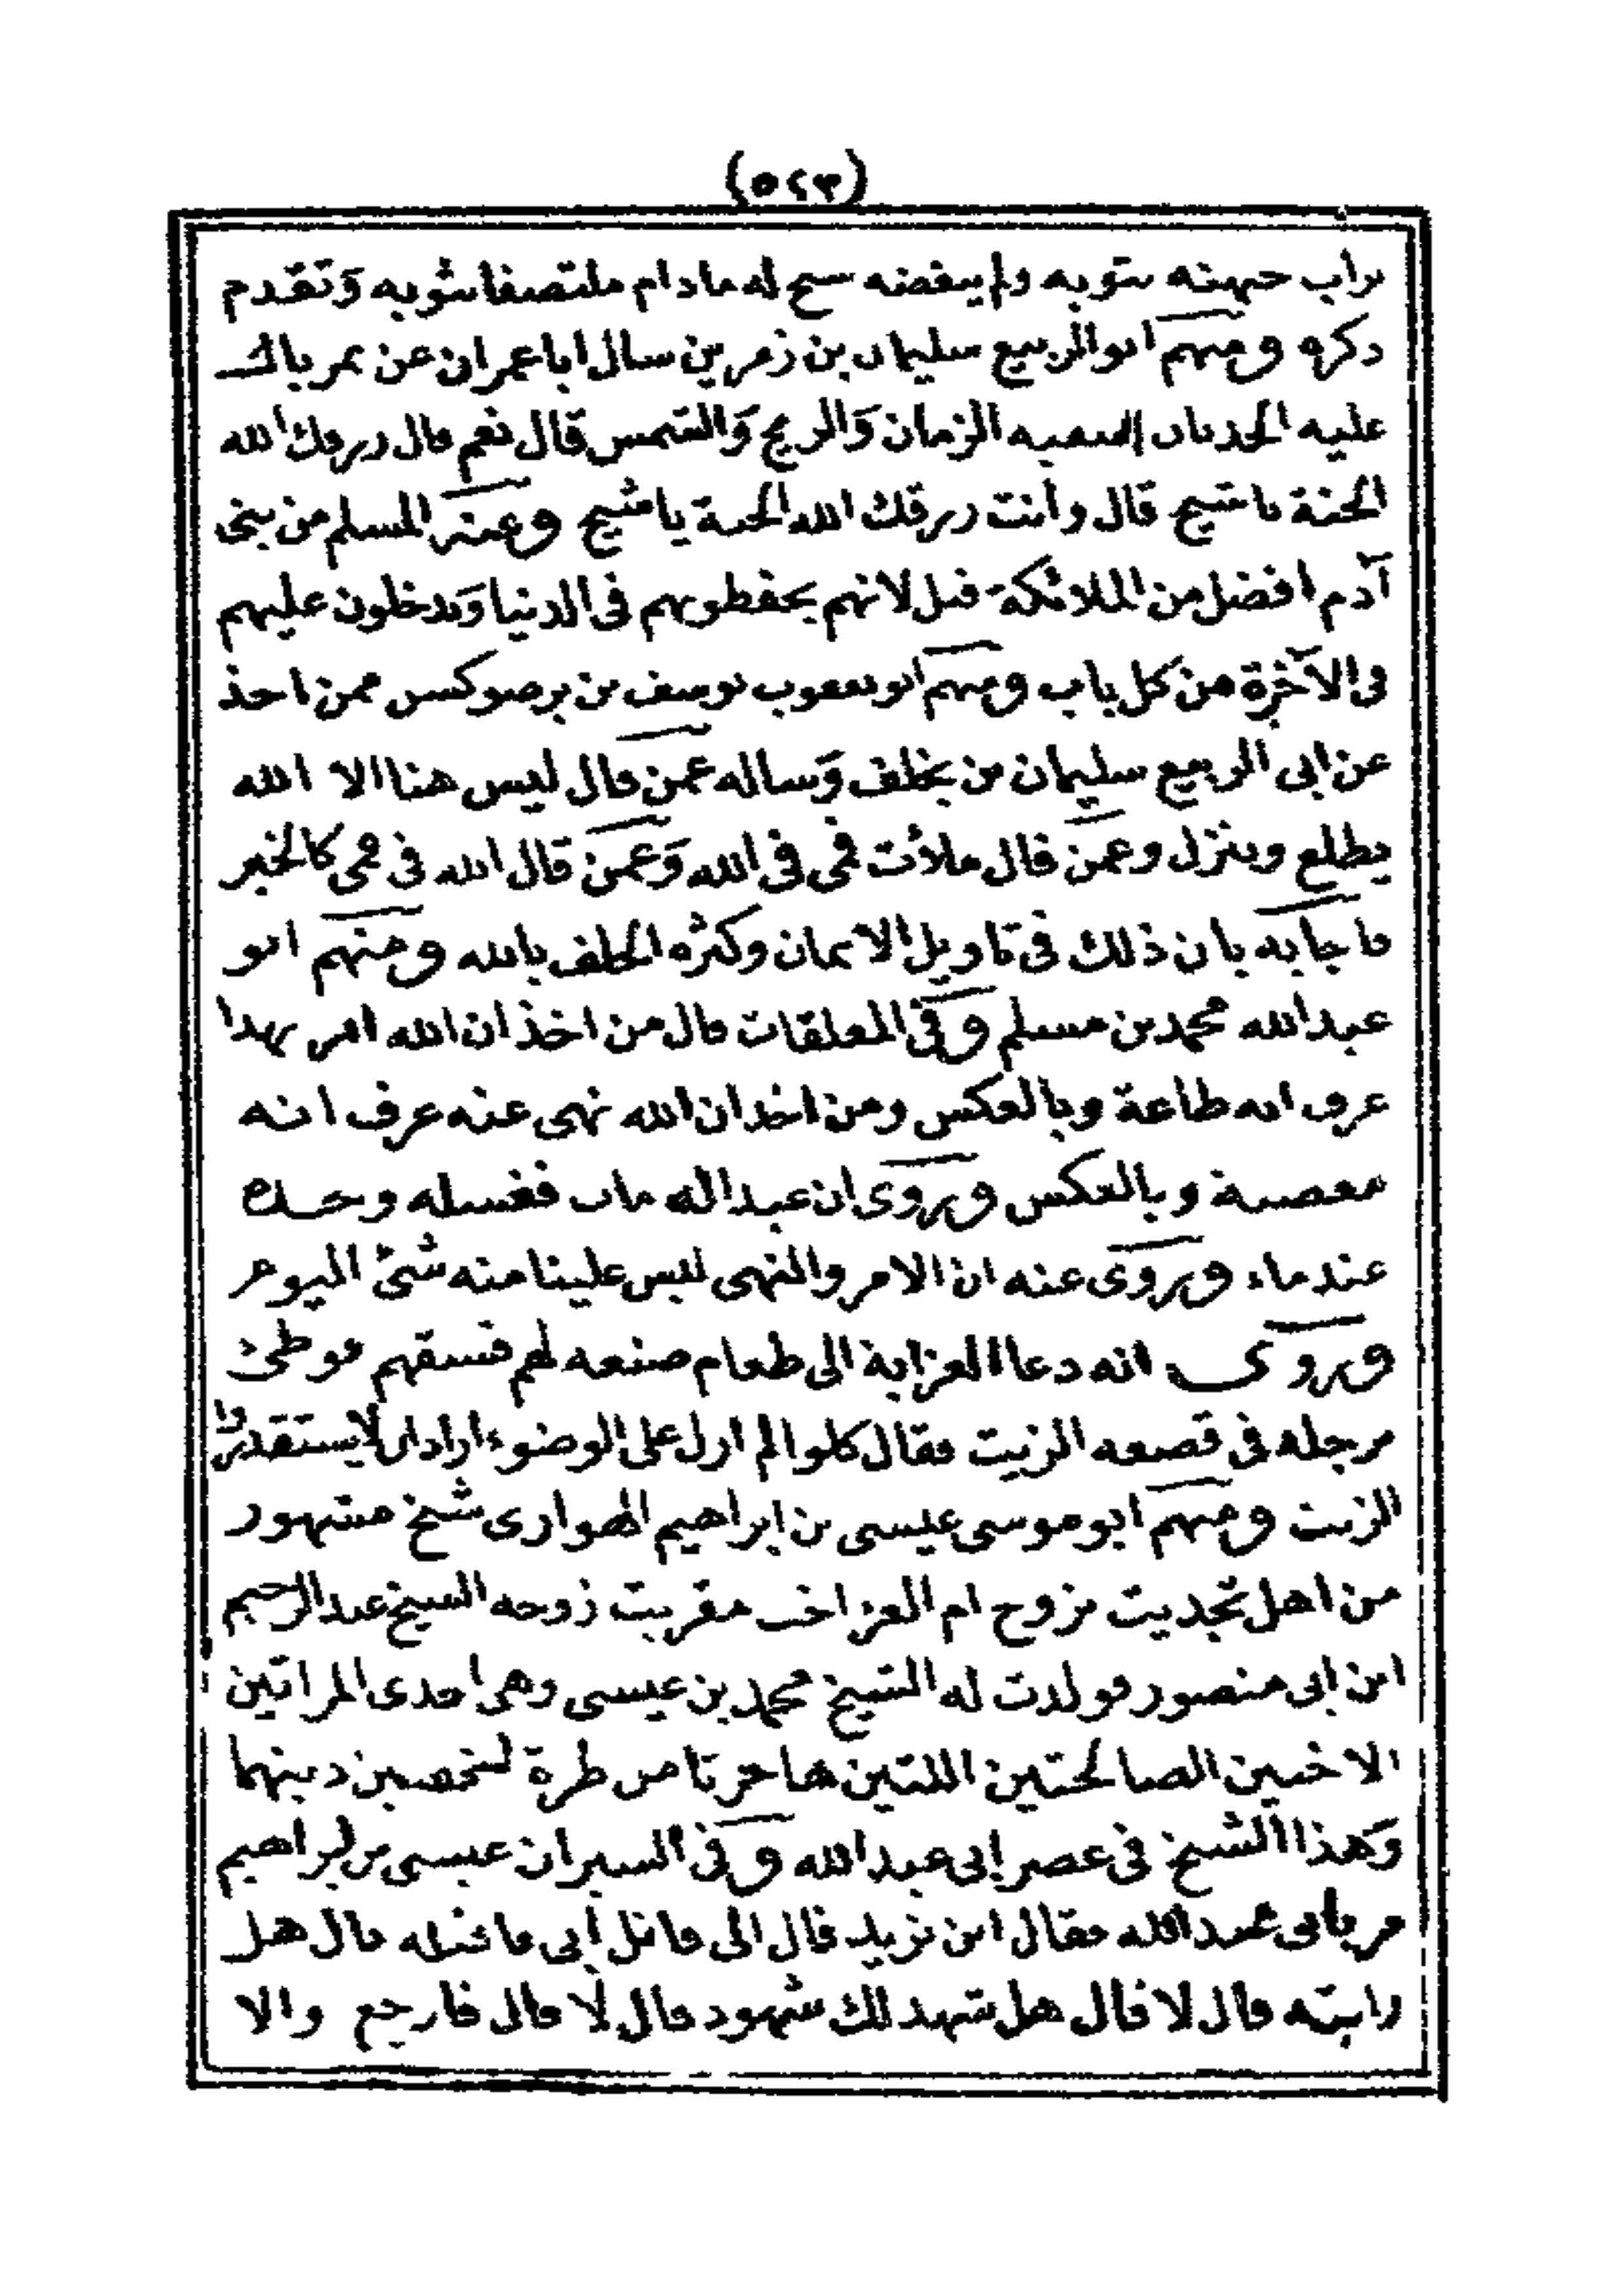 (٥٢٣)
تراب جبهته بثوبه ولم ينفضه سبح له مادام ملتصقا بثوبه وتقدم
ذكره ومنهم ابو الربيع سليمان بن زمرين سال ابا عمران عن تمر بالت
عليه الجديان الزمان والريح والشمس قال نعم قال رزقك الله
الجنة يا شيخ قال وأنت رزقك الله الجنة يا شيخ وعنه المسلم من بنى
آدم افضل من الملائكة قيل لانهم يحفظونهم فى الدنيا ويدخلون عليهم
فى الآخرة من كل باب ومنهم ابو يعقوب يوسف بن يرصوكسن ممن اخذ
عن ابى الربيع سليمان بن يخلف وساله عمن قال ليس هنا الا الله
يطلع وينزل وعمن قال ملأت فمى فى الله وعمن قال الله فى فمى كالخبز
فاجابه بان ذلك فى تاويل الايمان وكثره الحلف بالله ومنهم ابو
عبدالله محمد بن مسلم وفى المعلقات قال من اخذ ان الله امر بهذا
عرف انه طاعة وبالعكس ومن اخذ ان الله نهى عنه عرف انه
معصية وبالعكس وروى ان عبدا له مات فغسله وحده
عند ماء وروى عنه ان الامر والنهى ليس علينا منه شئ اليوم
وروى انه دعا العزابة الى طعام صنعه لهم فسقهم فوطئ
برجله فى قصعه الزيت فقال كلوا لم ازل على الوضوء اراد ان لا يستقذروا
الزيت ومنهم ابو موسى عيسى بن ابراهيم الهوارى شيخ مشهور
من اهل تجديت تزوج ام العز اخت مقرينت زوجه الشيخ عبد الرحيم
ابن ابى منصور فولدت له الشيخ محمد بن عيسى وهى احدى المراتين
الاختين الصالحتين اللتين هاجرتا من طرة لتحصين دينهما
وهذا الشيخ فى عصر ابى عبدالله وفى السير ان عيسى بن ابراهيم
مر بابى عبدالله فقال اين تريد قال الى قاتل أبى فاقتله قال هل
رايته قال لا قال هل شهد لك شهود قال لا قال فارجع والا